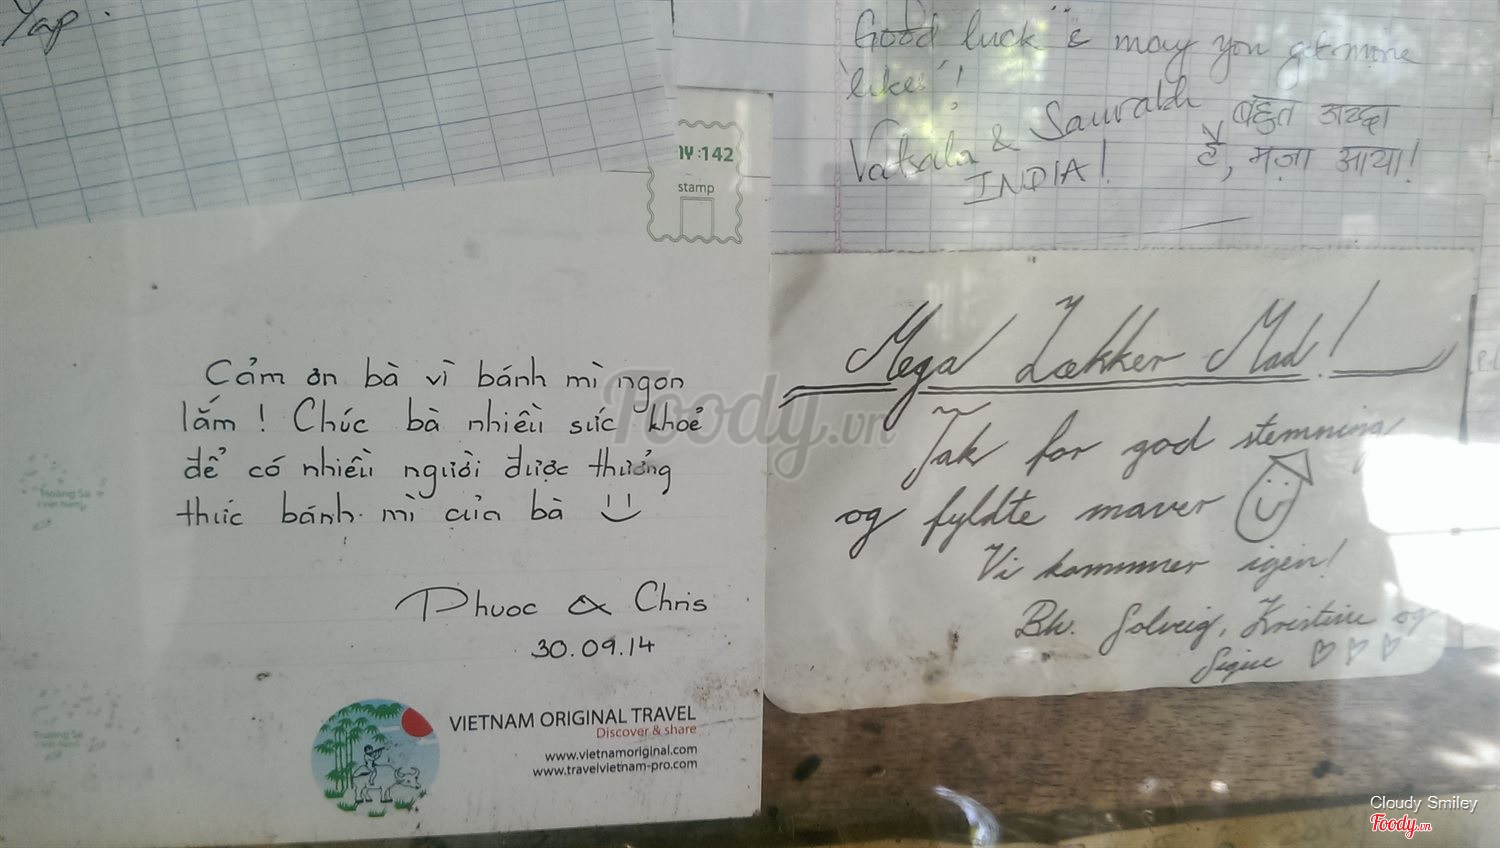 Yap.
Good luck & may you get more
'likes'!
Vatsala & Saurabh
INDIA!
बहुत अच्छा
है, मज़ा आया!
:142
stamp
Cảm ơn bà vì bánh mì ngon
lắm! Chúc bà nhiều sức khoẻ
để có nhiều người được thưởng
thức bánh mì của bà
Phuoc & Chris
30.09.14
Hoàng Sa
Trường Sa
VIETNAM ORIGINAL TRAVEL
Discover & share
www.vietnamoriginal.com
www.travelvietnam-pro.com
Mega Lækker Mad!
Tak for god stemning
og fyldte maver
Vi kommer igen!
Bh. Solveig, Kristine og
Signe
Foody.vn
Cloudy Smiley
Foody.vn